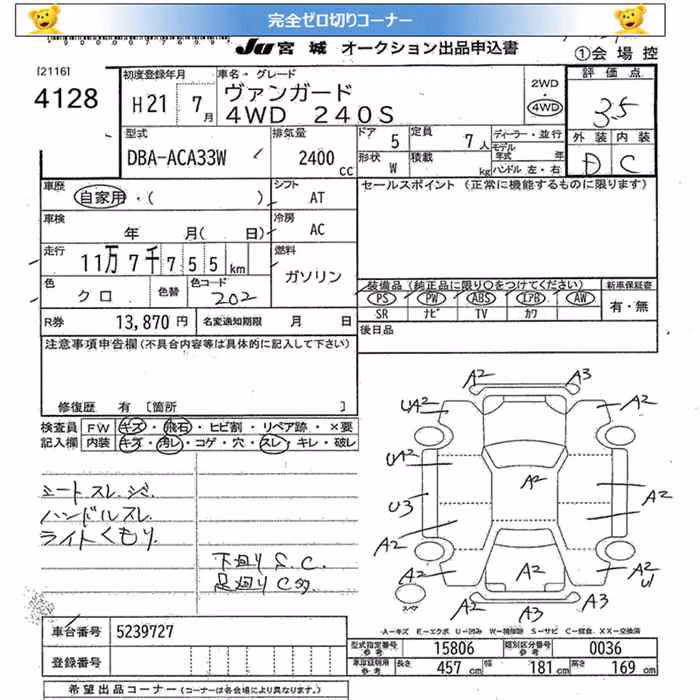 完全ゼロ切りコーナー
JU 宮城 オークション出品申込書
①会場控
[2116]
4128
初度登録年月
H21 7月
車名・グレード
ヴァンガード
4WD 240S
2WD
・
4WD
評価点
3.5
外装 内装
D C
型式
DBA-ACA33W
排気量
2400 cc
ドア 5
定員 7人
形状 W
積載 kg
ディーラー・並行
モデル年式 年
ハンドル 左・右
車歴
自家用・( )
シフト
AT
セールスポイント (正常に機能するものに限ります)
車検
年 月( 日)
冷房
AC
走行
11万7千755km
燃料
ガソリン
色
クロ
色替
色コード
202
装備品 (純正品に限り○をつけてください)
PS PW ABS エアB AW
SR ナビ TV カワ
新車保証書
有・無
R券
13,870円
名変通知期限 月 日
後日品
注意事項申告欄 (不具合内容等は具体的に記入して下さい)
修復歴 有 〔箇所 〕
検査員記入欄
FW キズ・飛石・ヒビ割・リペア跡・×要
内装 キズ・汚レ・コゲ・穴・スレ・キレ・破レ
シート スレ.シミ
ハンドルスレ
ライトくもり
下廻り S.C.
足廻り C多
A2 A3
UA2 A2
UA2
A2
U3 A2
A2
A2
A2 A2
U1
A2 A3
スペア
A-キズ E-エクボ U-凹ミ W-補修跡 S-サビ C-腐食、XX-交換済
車台番号 5239727
登録番号
型式指定番号 参考 15806
類別区分番号 参考 0036
車庫証明用 参考 長さ 457 cm 幅 181 cm 高さ 169 cm
希望出品コーナー (コーナーは各会場により異なります)